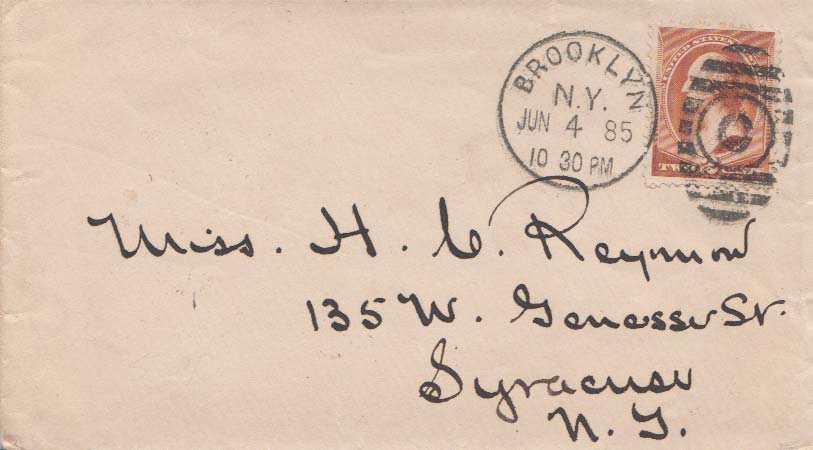 BROOKLYN
N.Y.
JUN 4 85
10 30 PM
UNITED STATES
TWO CENTS
Miss. H. C. Reymon
135 W. Genesse St.
Syracuse
N. Y.